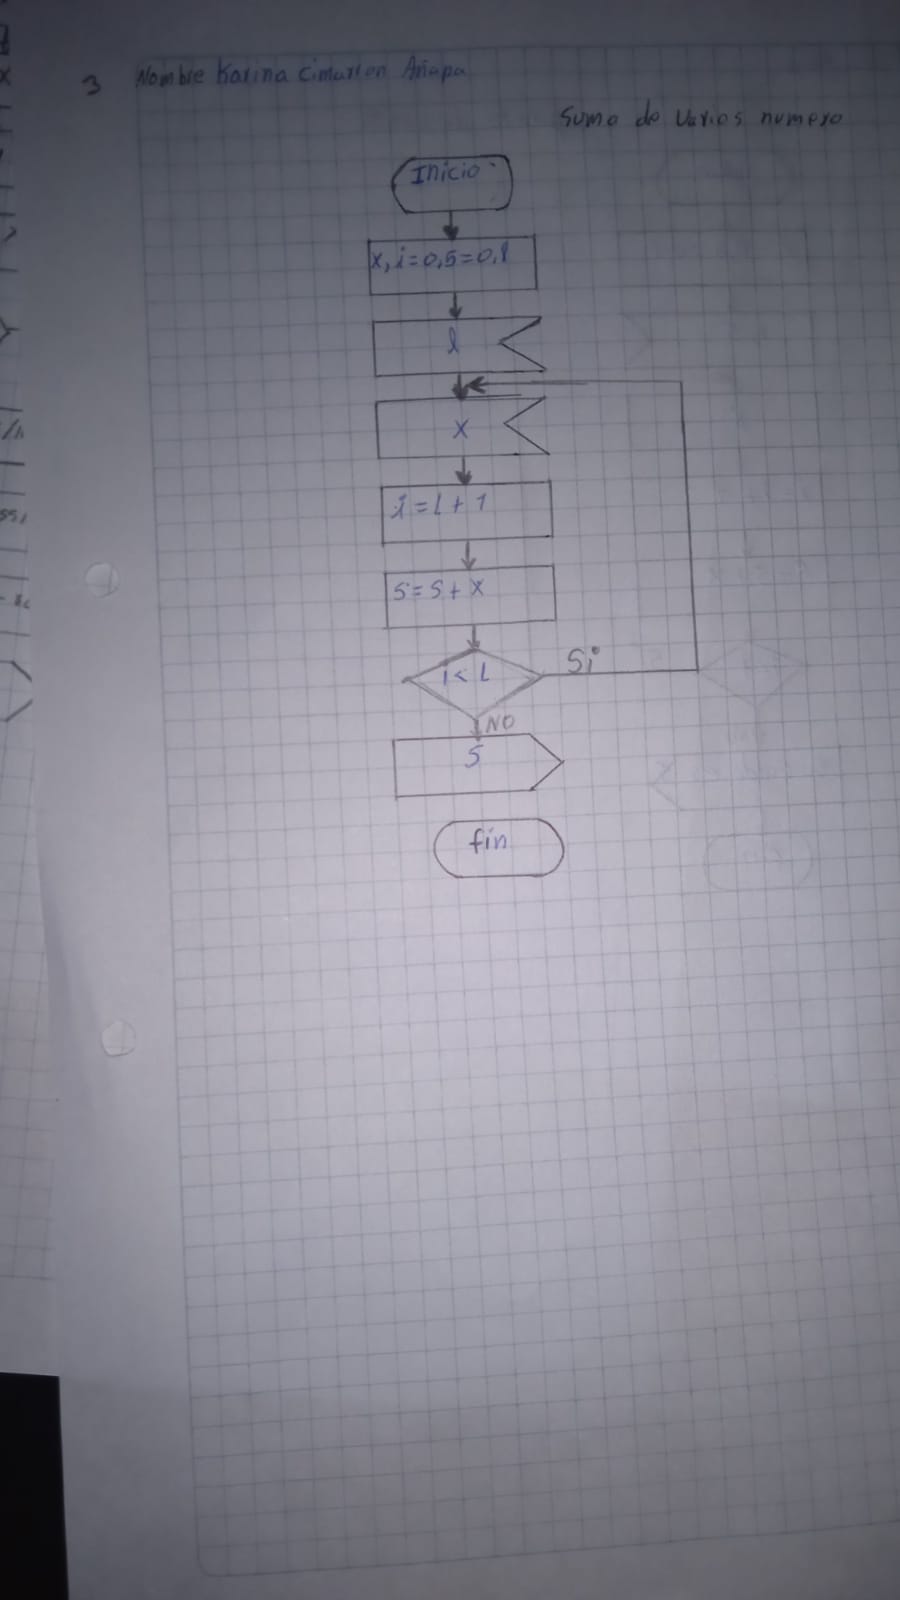 3 Nombre Karina Cimarron Añapa
Suma de varios numero
Inicio
x, i=0,5=0,l
l
x
i=l+1
S=S+X
i<L
Si
NO
S
fin